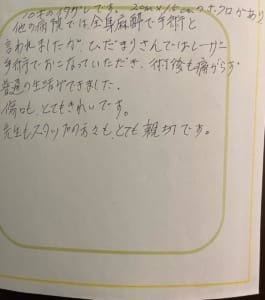 10才のイタグレです。2cm×1.5cmのホクロがあり
他の病院では全身麻酔で手術と
言われましたが、ひだまりさんではレーザー
手術でおこなっていただき、術後も痛がらず
普通の生活ができました。
傷口も、とてもきれいです。
先生もスタッフの方々も、とても親切です。